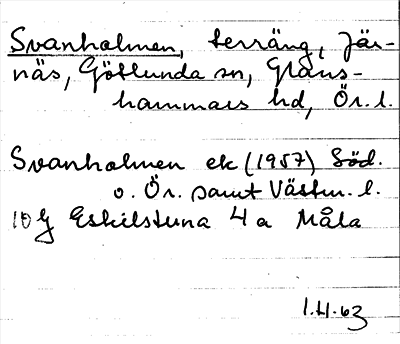 Svanholmen, terräng, Jär-
näs, Götlunda sn, Glans-
hammars hd, Ör. l.
Svanholmen ek (1957) Söd.
o. Ör. samt Västm. l.
10 G Eskilstuna 4 a Måla
1.H.63